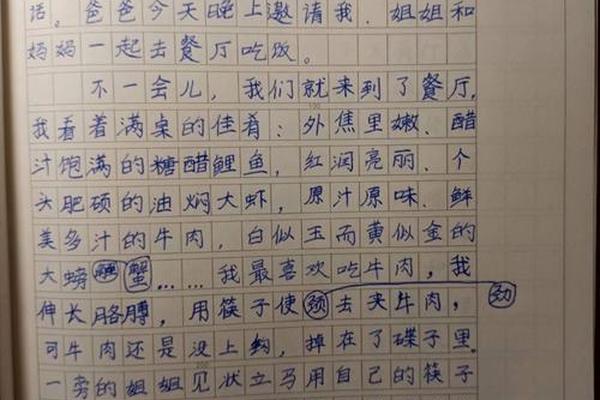 话。爸爸今天晚上邀请我、姐姐和
妈妈一起去餐厅吃饭。
不一会儿，我们就来到了餐厅，
我看着满桌的佳肴：外焦里嫩、醋
汁饱满的糖醋鲤鱼，红润亮丽、个
头肥硕的油焖大虾，原汁原味、鲜
美多汁的牛肉，白似玉而黄似金的
大螃蟹……我最喜欢吃牛肉，我
伸长胳膊，用筷子使颈去夹牛肉，劲
可牛肉还是没上钩，掉在了碟子里。
一旁的姐姐见状立马用自己的筷子